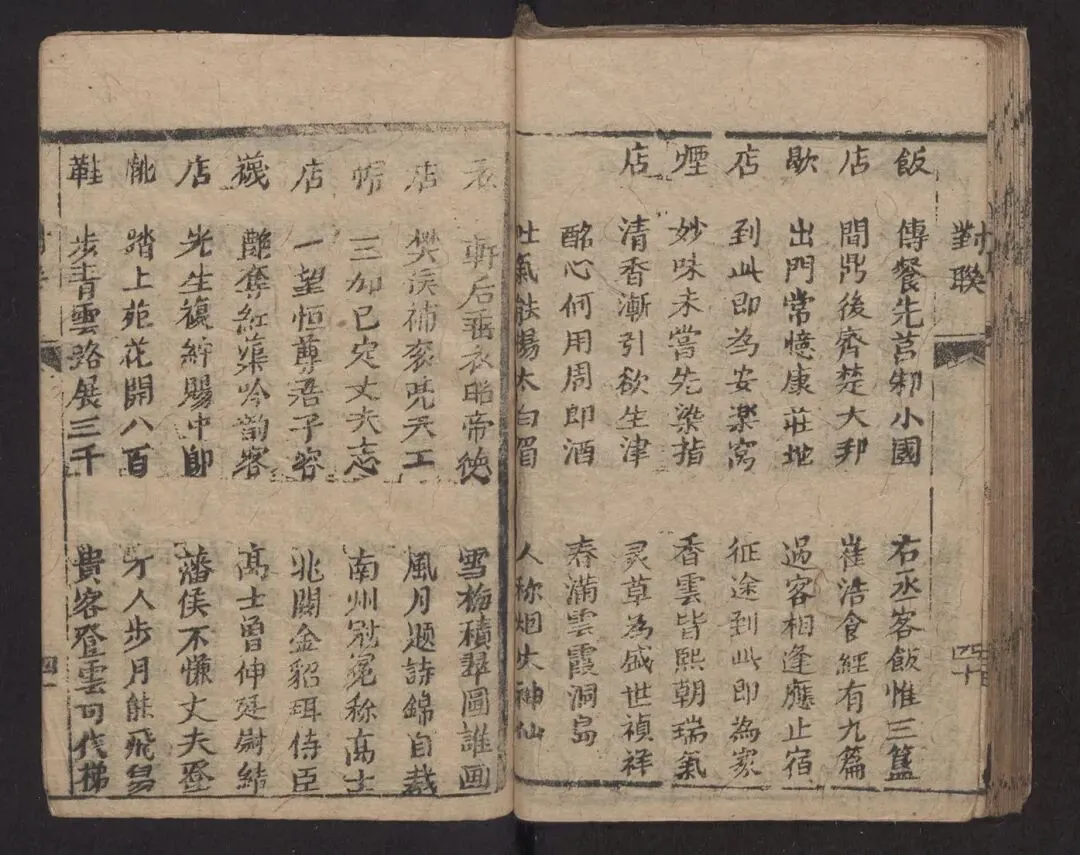 對聯 四十
飯 傳餐先莒邾小國 右丞客飯惟三簋
店 問鼎後齊楚大邦 崔浩食經有九篇
歇 出門常憶康莊地 過客相逢應止宿
店 到此即為安楽窩 征途到此即為家
煙 妙味未嘗先染指 香雲皆熙朝瑞氣
店 清香漸引欲生津 灵草為盛世禎祥
酩心何用周郎酒 春滿雲霞洞島
吐氣能揚太白眉 人称烟火神仙
衣 軒后垂衣昭帝德 雪梅積翠圖誰画
店 樊侯補袞天工 風月题詩錦自裁
帽 三加已定丈夫志 南州冠冕称高士
店 一望恒尊君子容 北闕金貂珥侍臣
襪 艷奪紅蕖吟韵客 高士曾伸廷尉結
店 先生複賜中郎 藩侯不慊丈夫登
靴 踏上苑花開八百 才人步月能飛舄
鞋 步青雲路展三千 貴客登雲可代梯